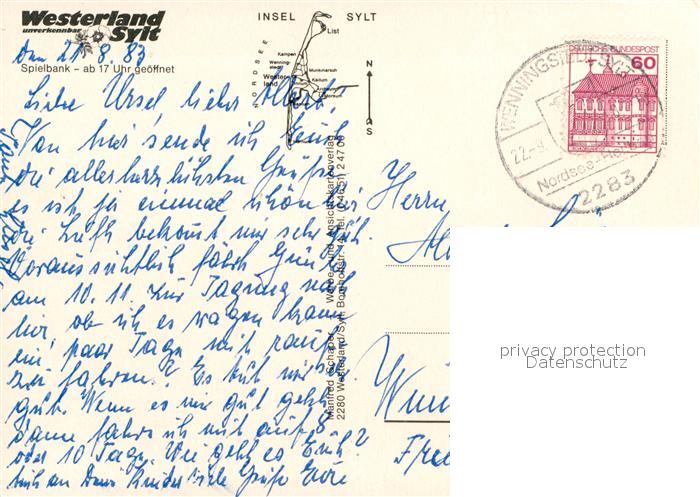 Westerland
unverkennbar Sylt
Spielbank – ab 17 Uhr geöffnet
INSEL SYLT
NORDSEE
List
Kampen
Wenningstedt
Westerland
Munkmarsch
Keitum
N
S
DEUTSCHE BUNDESPOST
60
WENNINGSTEDT-SYLT
22.-8.
Nordsee-Hei
2283
Manfred Schaper Werbe- und Ansichtskartenverlag
2280 Westerland/Sylt Bomhoffstr. Tel. (04651) 24700
privacy protection
Datenschutz
Den 21.8.83
Liebe Ursel, lieber Albert!
Von hier sende ich Euch
die allerherzlichsten Grüße
es ist ja einmal schön hier
die Luft bekommt mir sehr gut.
Voraussichtlich fährt Günter
am 10.11. zur Tagung nach
hier, ob ich es wagen kann
ein paar Tage mit rauf
zu fahren? Es tut mir
gut. Wenn es mir gut geht
dann fahre ich mit auf 8
oder 10 Tage. Wie geht es Euch?
auch an Deine Kinder viele Grüße Eure
Herrn